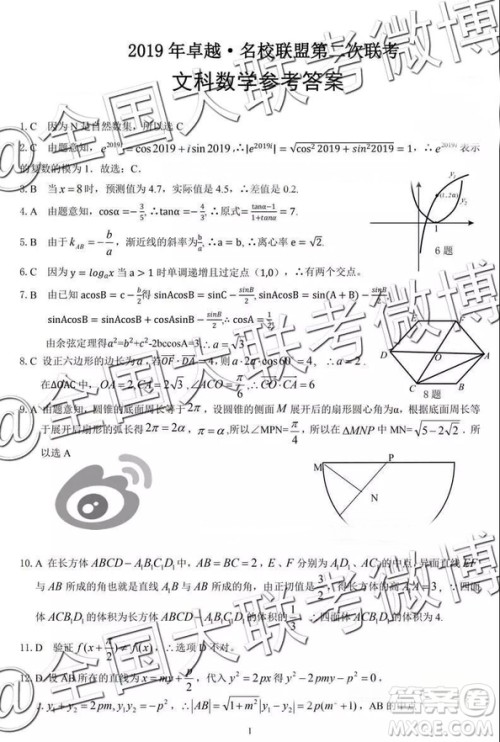 2019 年卓越·名校联盟第二次联考
文科数学参考答案
1. C 因为 N 是自然数集，所以选 C
2. C 由题意知，e^{2019i}=cos2019+isin2019，∴|e^{2019i}|=√(cos²2019+sin²2019)=1，∴e^{2019i}表示
的复数的模为 1．故选：C．
3. B 当 x=8 时，预测值为 4.7，实际值是 4.5，∴差值是 0.2.
4. A 由题意知，cosα=-3/5，∴tanα=-4/3，∴原式=(tanα-1)/(1+tanα)=7
5. B 由于 k_{AB}=-b/a，渐近线的斜率为 b/a，∴a=b，∴离心率 e=√2.
6. C 因为 y=log_a x 当 a>1 时单调递增且过定点（1,0），∴a=
7. B 由已知 acosB=c-b/2 得 sinAcosB=sinC-sinB/2，∴sinAcosB=sin(A+B)-sinB/2，
sinAcosB=sinAcosB+cosAsinB-sinB/2，∴cosA=1/2
由余弦定理得 a²=b²+c²-2bccosA=3
6 题
8. C 设正六边形的边长为 a，若 OF·DA=4，则 a·2a·cos60=4，∴a=2
在△OAC 中，OA=2,CA=2√3,∠ACO=π/6，∴CO·CA=
8 题
9. A 由题意知，圆锥的底面周长等于 2π，设圆锥的侧面 M 展开后的扇形圆心角为α，根据底面周长
等于展开后扇形的弧长得 2π=2α，π=α,所以∠MPN=π/4，所以在 ΔMNP 中 MN=√(5-2√2)．所
以选 A
M
P
N
10. A 在长方体 ABCD-A₁B₁C₁D₁ 中，AB=BC=2，E、F 分别为 D₁A、AC 的中点，异面直线 EF
与 AB 所成的角也就是直线 与 AB 所成的角，由正切值是 3/2，∴高为 3，∴四面体
ACB₁D₁ 的体积为长方体 ABCD-A₁B₁C₁D₁ 的体积的 1/3，∴四面体 ACB₁D₁ 的体积为 4.
11. D 验证 f(x+π/2)≠f(x)，
12. D 设 AB 所在的直线为 x=my+p/2，代入 y²=2px 得 y²-2pmy-p²=0，
∴y₁y₂=-p²,y₁+y₂=2pm，∴|AB|=√(1+m²)|y₁-y₂|=2p(1+m²)，AB 的中点
1
@全国大联考微博
@全国大联考微博
@全国大联考微博
答案圈